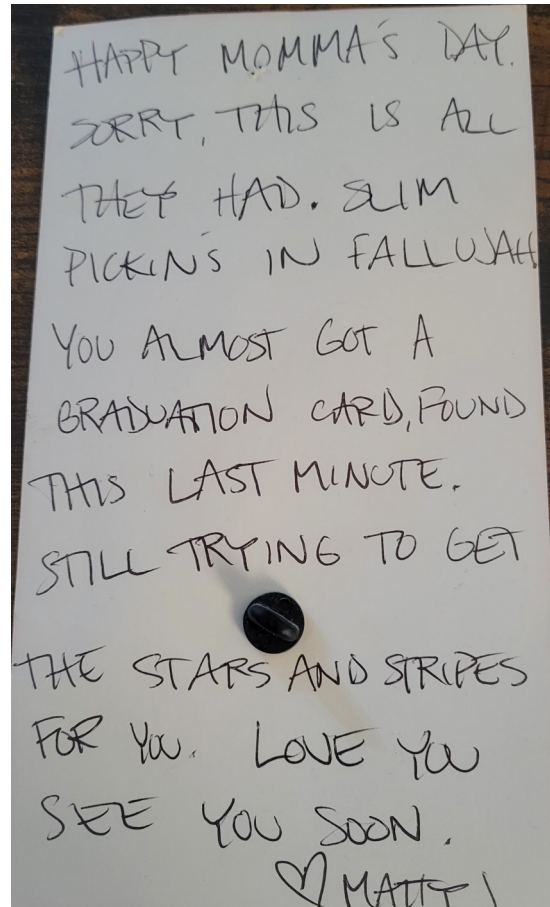 HAPPY MOMMA'S DAY.
SORRY, THIS IS ALL
THEY HAD. SLIM
PICKIN'S IN FALLUJAH
YOU ALMOST GOT A
GRADUATION CARD, FOUND
THIS LAST MINUTE.
STILL TRYING TO GET
THE STARS AND STRIPES
FOR YOU. LOVE YOU
SEE YOU SOON.
♡